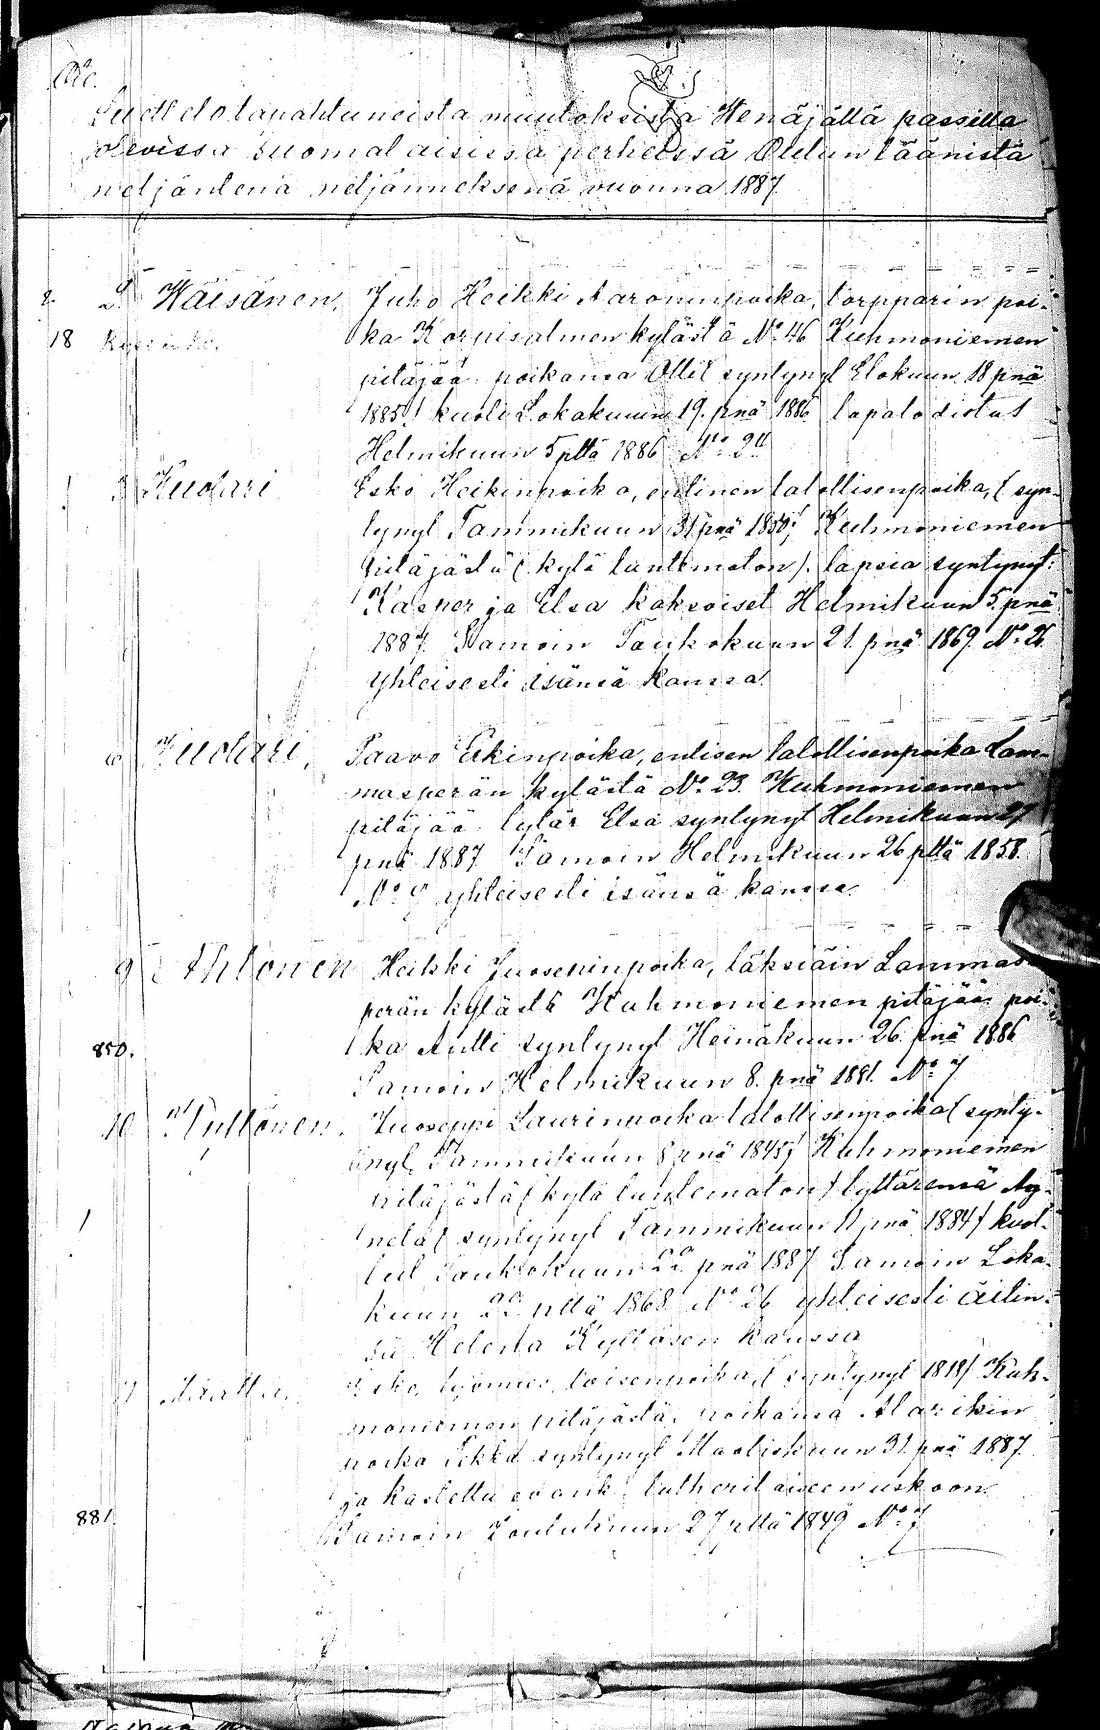 Luettelo tapahtuneista muutoksista Wenäjällä passilla
olevissa suomalaisissa perheissä Oulun läänistä
neljäntenä neljänneksenä vuonna 1887
2. Wäisänen, Juho Heikki Aaroninpoika, torpparin poi-
18 ka Korpisalmen kylästä No 46 Kuhmoniemen
pitäjää poikansa Olli syntynyt Elokuun 18 pnä
1885 kuoli Lokakuun 19. pnä 1886
Helmikuun 5 pltä 1886 No
Esko Heikinpoika, entinen talollisenpoika, (syn-
tynyt Tammikuun 31 pnä 1850) Kuhmoniemen
pitäjästä (kylä tuntematon). lapsia syntynyt:
Kasper ja Elsa kaksoiset Helmikuun 5. pnä
1887. Samoin Toukokuun 21. pnä 1869 No 26
yhteisesti isänsä kanssa.
Paavo Erkinpoika, entisen talollisenpoika Lam-
masperän kylästä No 23. Kuhmoniemen
pitäjää tytär Elsa syntynyt Helmikuun 27
pnä 1887 Samoin Helmikuun 26 pltä 1858.
No 9 yhteisesti isänsä kanssa.
9 Ahtonen Heikki Juoseppinpoika, läksiäin Lammas-
perän kylästä Kuhmoniemen pitäjää poi-
850. ka Antti syntynyt Heinäkuun 26. pnä 1886
Samoin Helmikuun 8. pnä 1881. No 7
10 Kyllönen. Juoseppi Laurinpoika talollisenpoika (synty-
nyt Tammikuun 8 pnä 1845) Kuhmoniemen
pitäjästä (kylä tuntematon) tyttärensä Ag-
neta (syntynyt Tammikuun 11 pnä 1884) kuol-
lut Toukokuun 22 pnä 1887 Samoin Loka-
kuun 22 pltä 1868 No 26 yhteisesti äitin-
sä Helena Kyllösen kanssa
työmies, loisenpoika, (syntynyt 1818) Kuh-
moniemen pitäjästä, poikansa
poika Pekka syntynyt Maaliskuun 31. pnä 1887
ja kastettu evank. lutherilaiseen uskoon
881. Samoin Joulukuun 27 pltä 1849 No 7